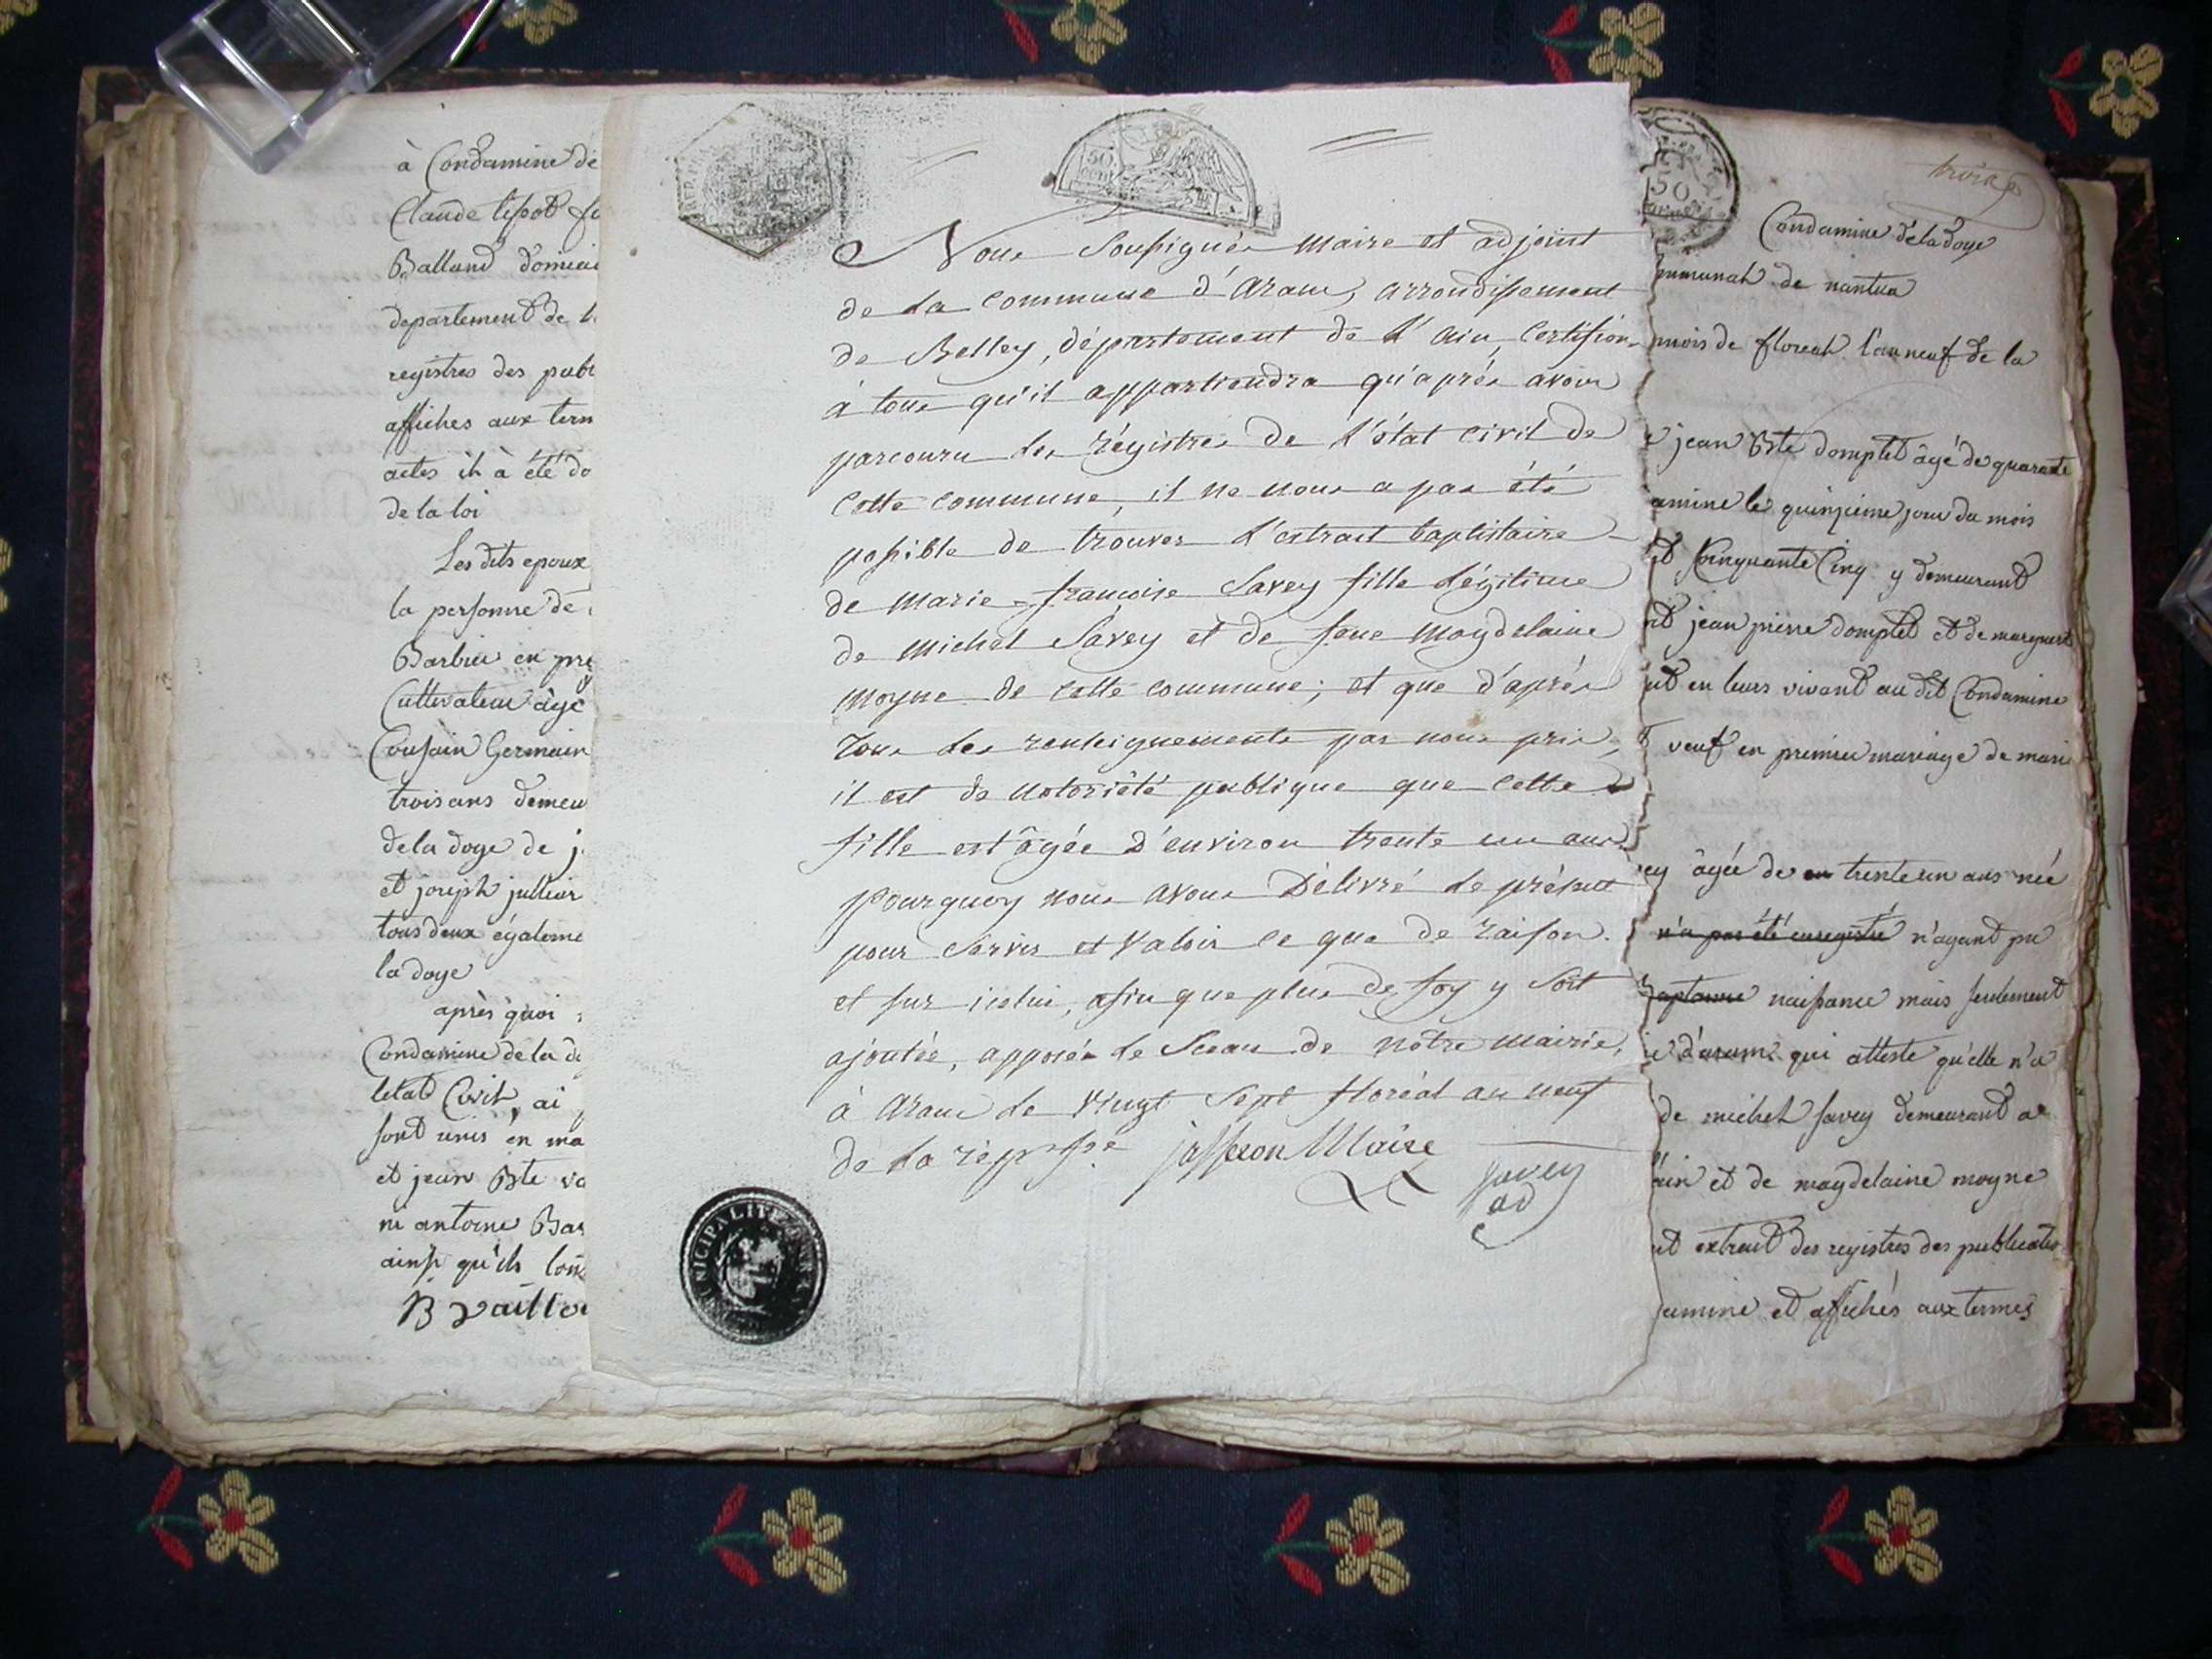 à Condamine de
Claude lispot fi
Balland domici
departement de l
registres des publ
affiches aux term
actes il à été do
de la loi
Les dits epoux
la personne de
Barbier en pre
Cultivateur âgé
Cousain Germain
trois ans demeu
dela doye de j
et joseph jullien
tous deux égaleme
la doye
après quoi
Condamine de la do
letat Civil, ai
sont unis en ma
et jean Bte va
ni antoine Bar
ainsi qu'ils l'on
B vaillo
50
Nous Soussignés maire et adjoint
de la commune d'aranc, arrondissement
de Belley, département de l'ain, certifions
à tous qu'il appartiendra qu'après avoir
parcouru les régistres de l'état civil de
cette commune, il ne nous a pas été
possible de trouver l'extrait baptistaire
de marie-francoise Savey fille légitime
de michel Savey et de feue maydelaine
moyne de cette commune; et que d'après
tous les renseignements par nous pris,
il est de notoriété publique que cette
fille est âgée d'environ trente un ans
pourquoy nous avons Délivré le présent
pour servir et valoir ce que de raison.
et sur icelui, afin que plus de foy y soit
ajoutée, apposés le Sceau de nôtre mairie,
à aranc le vingt sept floréal an neuf
de la rép fse jasseron Maire
Savey
ad
50
trois
Condamine dela doye
ommunal de nantua
mois de floreal l'an neuf de la
e jean Bte domptet âgé de quarante
amine le quinzieme jour du mois
t Cinquante Cinq y demeurant
nt jean pierre domptet et de marguerit
nt en leurs vivant au dit Condamine
t veuf en premier mariage de mari
ey âgée de en trente un ans née
n'a pas été enregistré n'ayant pu
Baptaire naissance mais seulement
ie d'aranc qui atteste qu'elle n'a
de michel savey demeurant a
ain et de maydelaine moyne
nt extrait des registres des publicatio
amine et affichés aux termes